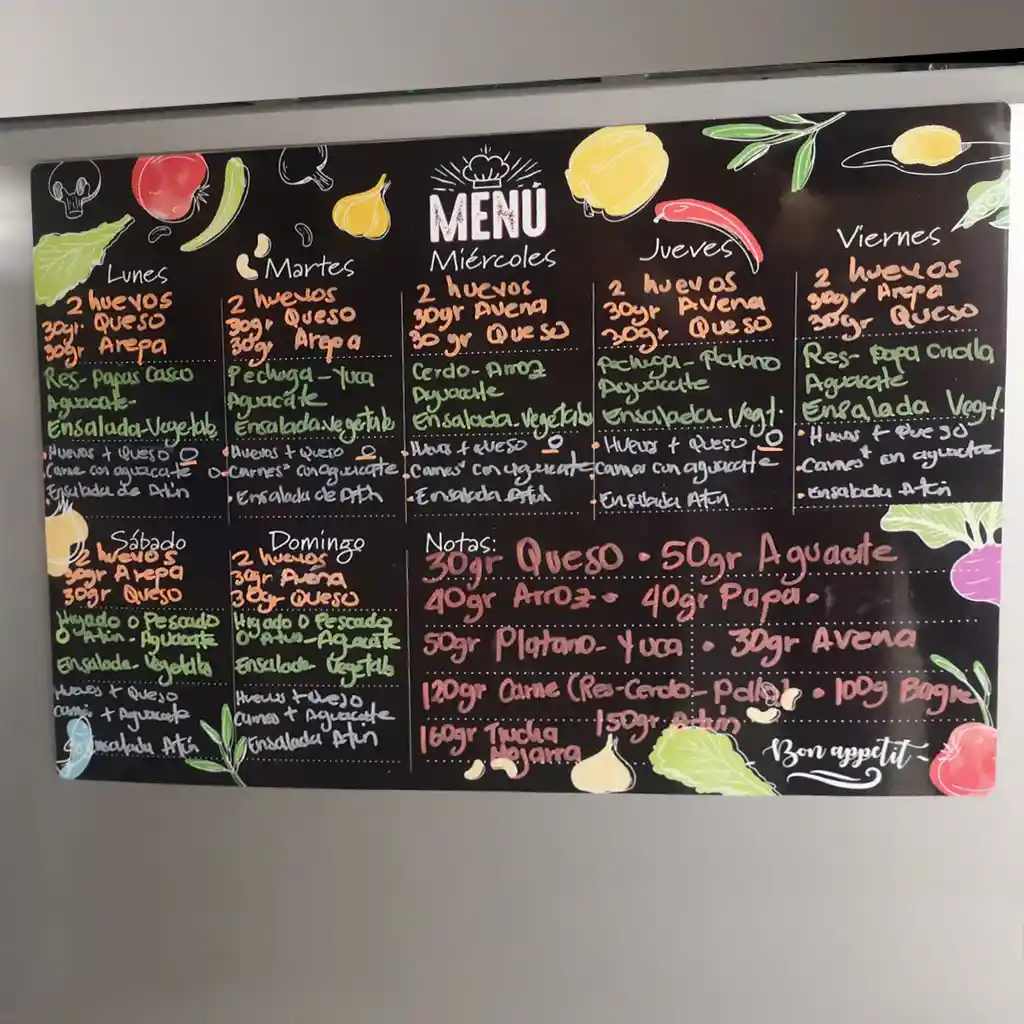 MENÚ
Lunes
2 huevos
30gr. Queso
30gr. Arepa
Res- Papas Casco
Aguacate-
Ensalada-Vegetab
Huevos + Queso O
Carne con aguacate O
Ensalada de Atún
Martes
2 huevos
30gr. Queso
30gr. Arepa
Pechuga - Yuca
Aguacate
Ensalada vegetab
Huevos + Queso O
Carnes* con aguacate
Ensalada de Atún
Miércoles
2 huevos
30gr Avena
30 gr Queso
Cerdo- Arroz
Aguacate
Ensalada Vegetab
Huevos + queso O
Carnes* con aguacate
Ensalada Atún
Jueves
2 huevos
30gr Avena
30gr Queso
Pechuga- Platano
Aguacate
Ensalada Vegt.
Huevos + Queso O
Carnes con aguacate
Ensalada Atún
Viernes
2 huevos
30gr Arepa
30gr Queso
Res- papa criolla
Aguacate
Ensalada Vegt.
Huevos + Queso
Carnes* con aguacate
Ensalada Atún
Sábado
2 huevos
30gr Arepa
30gr Queso
Higado o Pescado
O Atún- Aguacate
Ensalada- Vegetab
Huevos + Queso
Carnes + Aguacate
Ensalada Atún
Domingo
2 huevos
30gr Avena
30gr Queso
Higado O Pescado
O Atún-Aguacate
Ensalada Vegetab
Huevos + Queso
Carnes + Aguacate
Ensalada Atún
Notas:
30gr Queso • 50gr Aguacate
40gr Arroz • 40gr Papa •
50gr Platano- Yuca • 30gr Avena
120gr Carne (Res-Cerdo- Pollo) • 100g Bagre
160gr Trucha 150gr Atún
Mojarra
Bon appetit